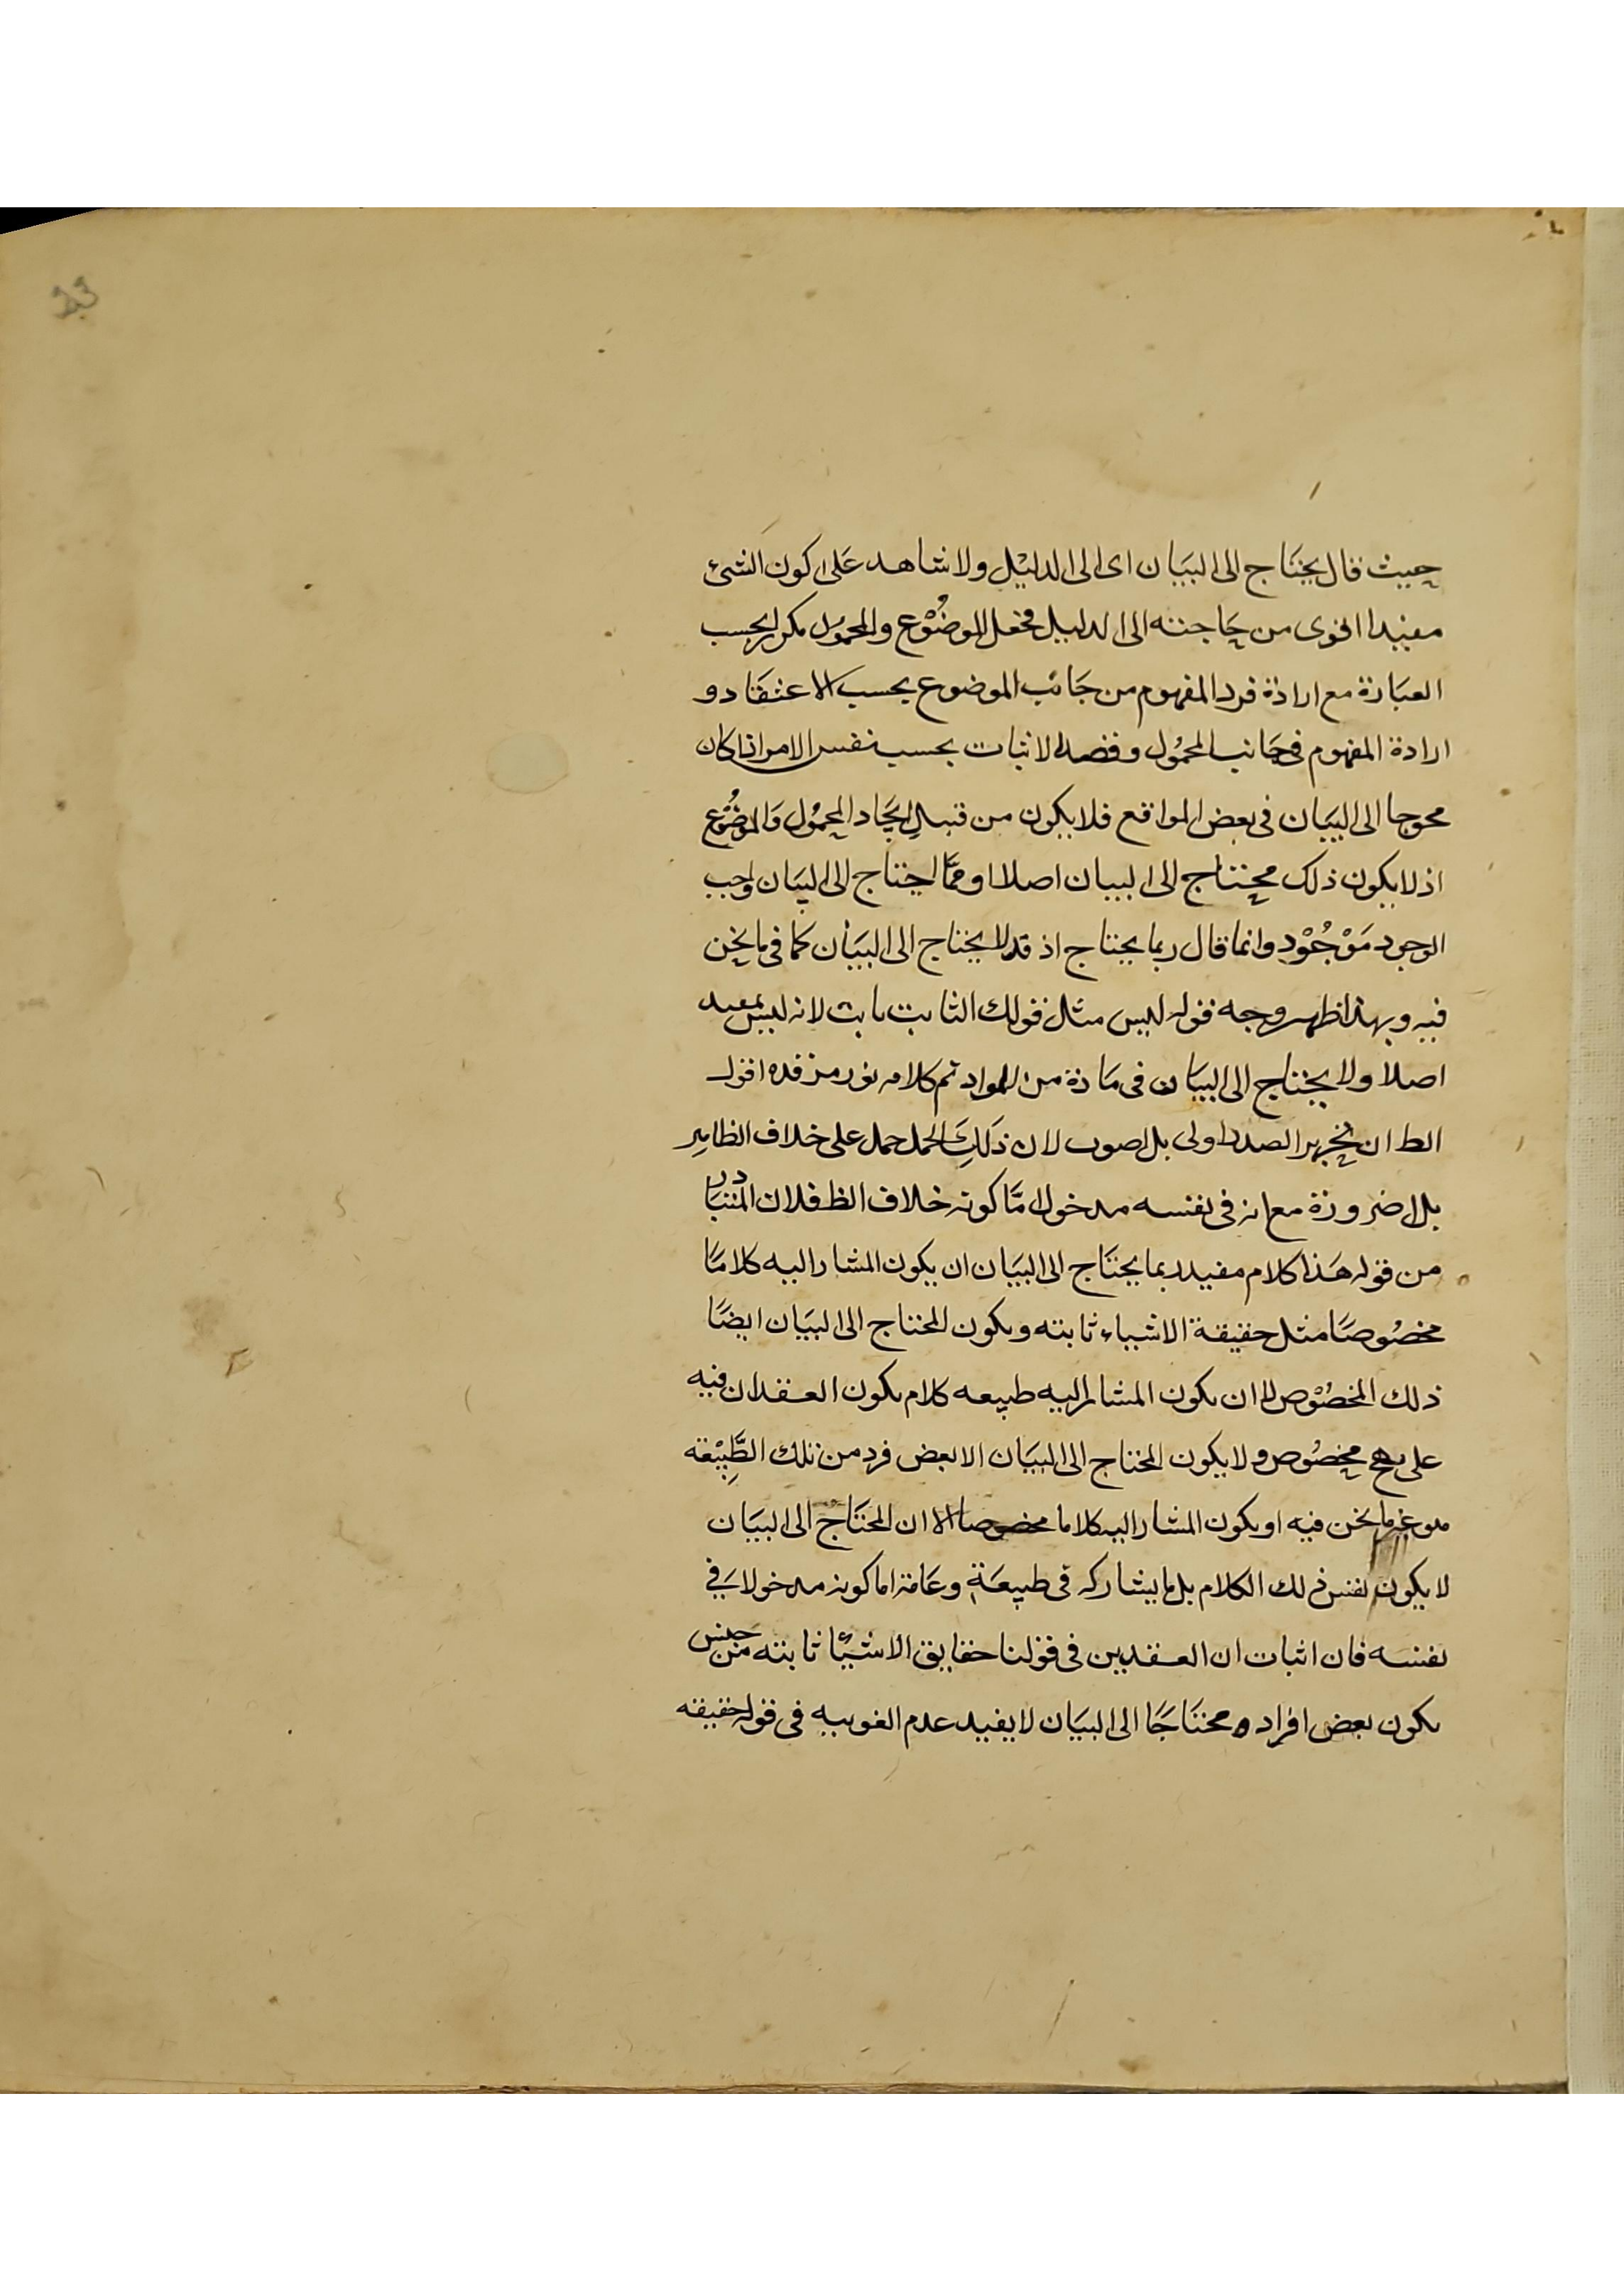 حيث قال يحتاج الى البيان اى الى الدليل ولا شاهد على كون الشئ
مفيدا اقوى من حاجته الى الدليل فجعل الموضوع والمحمول مكررا بحسب
العبارة مع ارادة فرد المفهوم من جانب الموضوع بحسب الاعتقاد و
ارادة المفهوم فى جانب المحمول وقصد الاثبات بحسب نفس الامر اذا كان
محوجا الى البيان فى بعض المواقع فلا يكون من قبيل ايجاد المحمول والموضوع
اذ لا يكون ذلك محتاج الى البيان اصلا او مما احتاج الى البيان واجب
الوجود موجود وانما قال ربما يحتاج اذ قد لا يحتاج الى البيان كما فى ما نحن
فيه وبهذا ظهر وجه قوله ليس مثل قولك الثابت ثابت لانه ليس بمفيد
اصلا ولا يحتاج الى البيان فى مادة من المواد تم كلامه نور مرقده اقول
الظ ان تحرير الصدر اولى بل اصوب لان ذلك الحمل حمل على خلاف الظاهر
بلا ضرورة مع انه فى نفسه مدخول اما كونه خلاف الظ فلان المتبادر
من قوله هذا كلام مفيد ربما يحتاج الى البيان ان يكون المشار اليه كلاما
مخصوصا مثل حقيقة الاشياء ثابته ويكون المحتاج الى البيان ايضا
ذلك المخصوص لا ان يكون المشار اليه طبيعه كلام يكون العقدان فيه
على نهج مخصوص ولا يكون المحتاج الى البيان الا بعض فرد من تلك الطبيعة
هو غير ما نحن فيه او يكون المشار اليه كلاما مخصوصا الا ان المحتاج الى البيان
لا يكون نفس ذلك الكلام بل ما يشاركه فى طبيعة وعامة اما كونه مدخولا فى
نفسه فان اثبات ان العقدين فى قولنا حقايق الاشيئا ثابته من جنس
يكون بعض افراده محتاجا الى البيان لا يفيد عدم اللغوييه فى قوله حقيقه